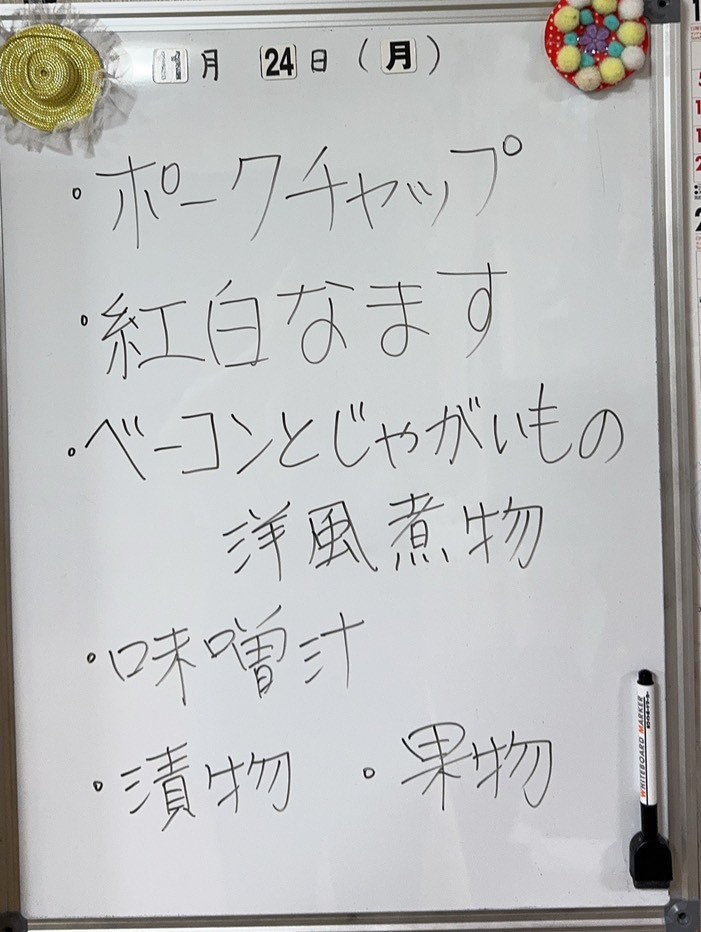 11月 24日(月)
・ポークチャップ
・紅白なます
・ベーコンとじゃがいもの
洋風煮物
・味噌汁
・漬物 ・果物
WHITEBOARD MARKER